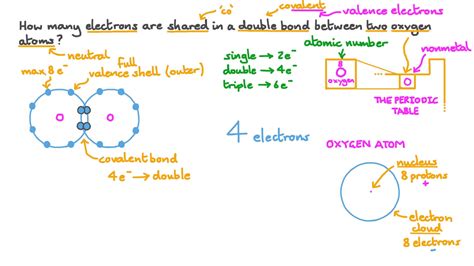 'co'
covalent
valence electrons
How many electrons are shared in a double bond between two oxygen
atoms?
neutral
full
max 8 e⁻
valence shell (outer)
single → 2e⁻
double → 4e⁻
triple → 6e⁻
atomic number
nonmetal
8
O
oxygen
O
THE PERIODIC
TABLE
O
O
covalent bond
4e⁻ → double
4 electrons
OXYGEN ATOM
nucleus
8 protons
+
electron
cloud
8 electrons
-